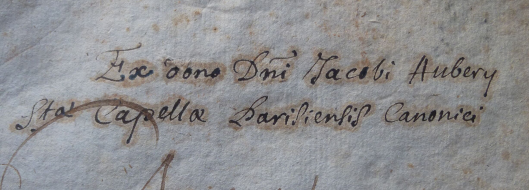 Ex dono Dni Jacobi Aubery
Stæ Capellæ Parisiensis Canonici